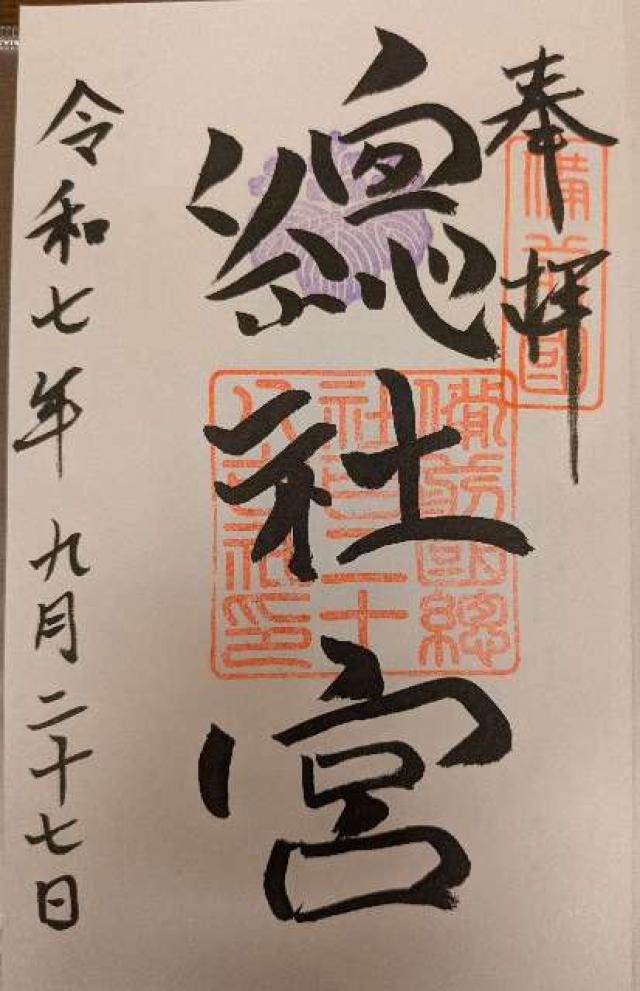 奉拝
備前國
總社宮
備前國總
社百二十
八社之印
令和七年 九月二十七日